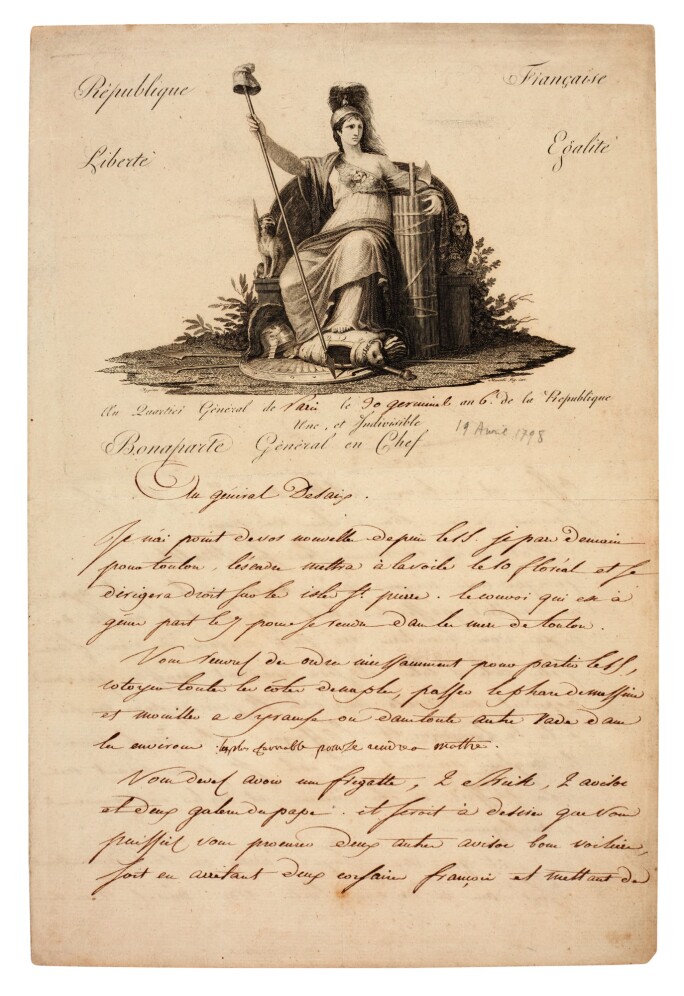 République Française
Liberté Egalité
Au Quartier Général de Paris le 30 germinal an 6.e de la République
Une, et Indivisible
19 Avril 1798
Bonaparte Général en Chef
Au général Desaix.
Je n'ai point de vos nouvelle depuis le . je pars demain
pour toulon, l'escadre mettra à la voile le 10 floréal et se
dirigera droit sur les isles St. pierre. le convoi qui est à
gêne part le 7 pour se rendre dans les mers de toulon.
Vous recevrez des ordres incessamment pour partir le ,
cotoyer toutes les côtes de naples, passer le phare de messine
et mouiller a Syracuse ou dans toute autre rade dans
les environs les plus favorable pour se rendre a malthe.
Vous devez avoir une frégatte, 2 , 2 avisos
et deux galeres du pape. il seroit à desirer que vous
puissiez vous procurer deux autres avisos bons voiliers,
soit en arrêtant deux corsaires françois et mettant des